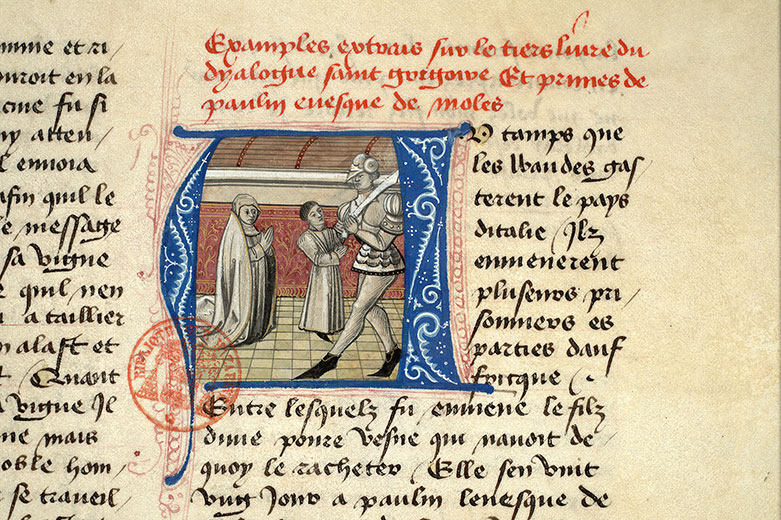 omme et ri
ouroit en la
fu si
ny atten
l enuoia
afin quil le
le message
sa vigne
e quil nen
u a taillier
n alast et
t Quant
a vigne Il
me mais
hom
r se traueil
Examples extrais sur le tiers liure du
dyalogue saint gregoire Et primes de
paulin euesque de moles
Au tamps que
les wandes gas
terent le pays
ditalie / Ilz
enmenerent
pluseurs pri
sonniers es
parties dauf
fricque /
Entre lesquelz fu / enmene le filz
dune poure vesue qui nauoit de
quoy le racheter / Elle sen vint
vng Jour a paulin leuesque de